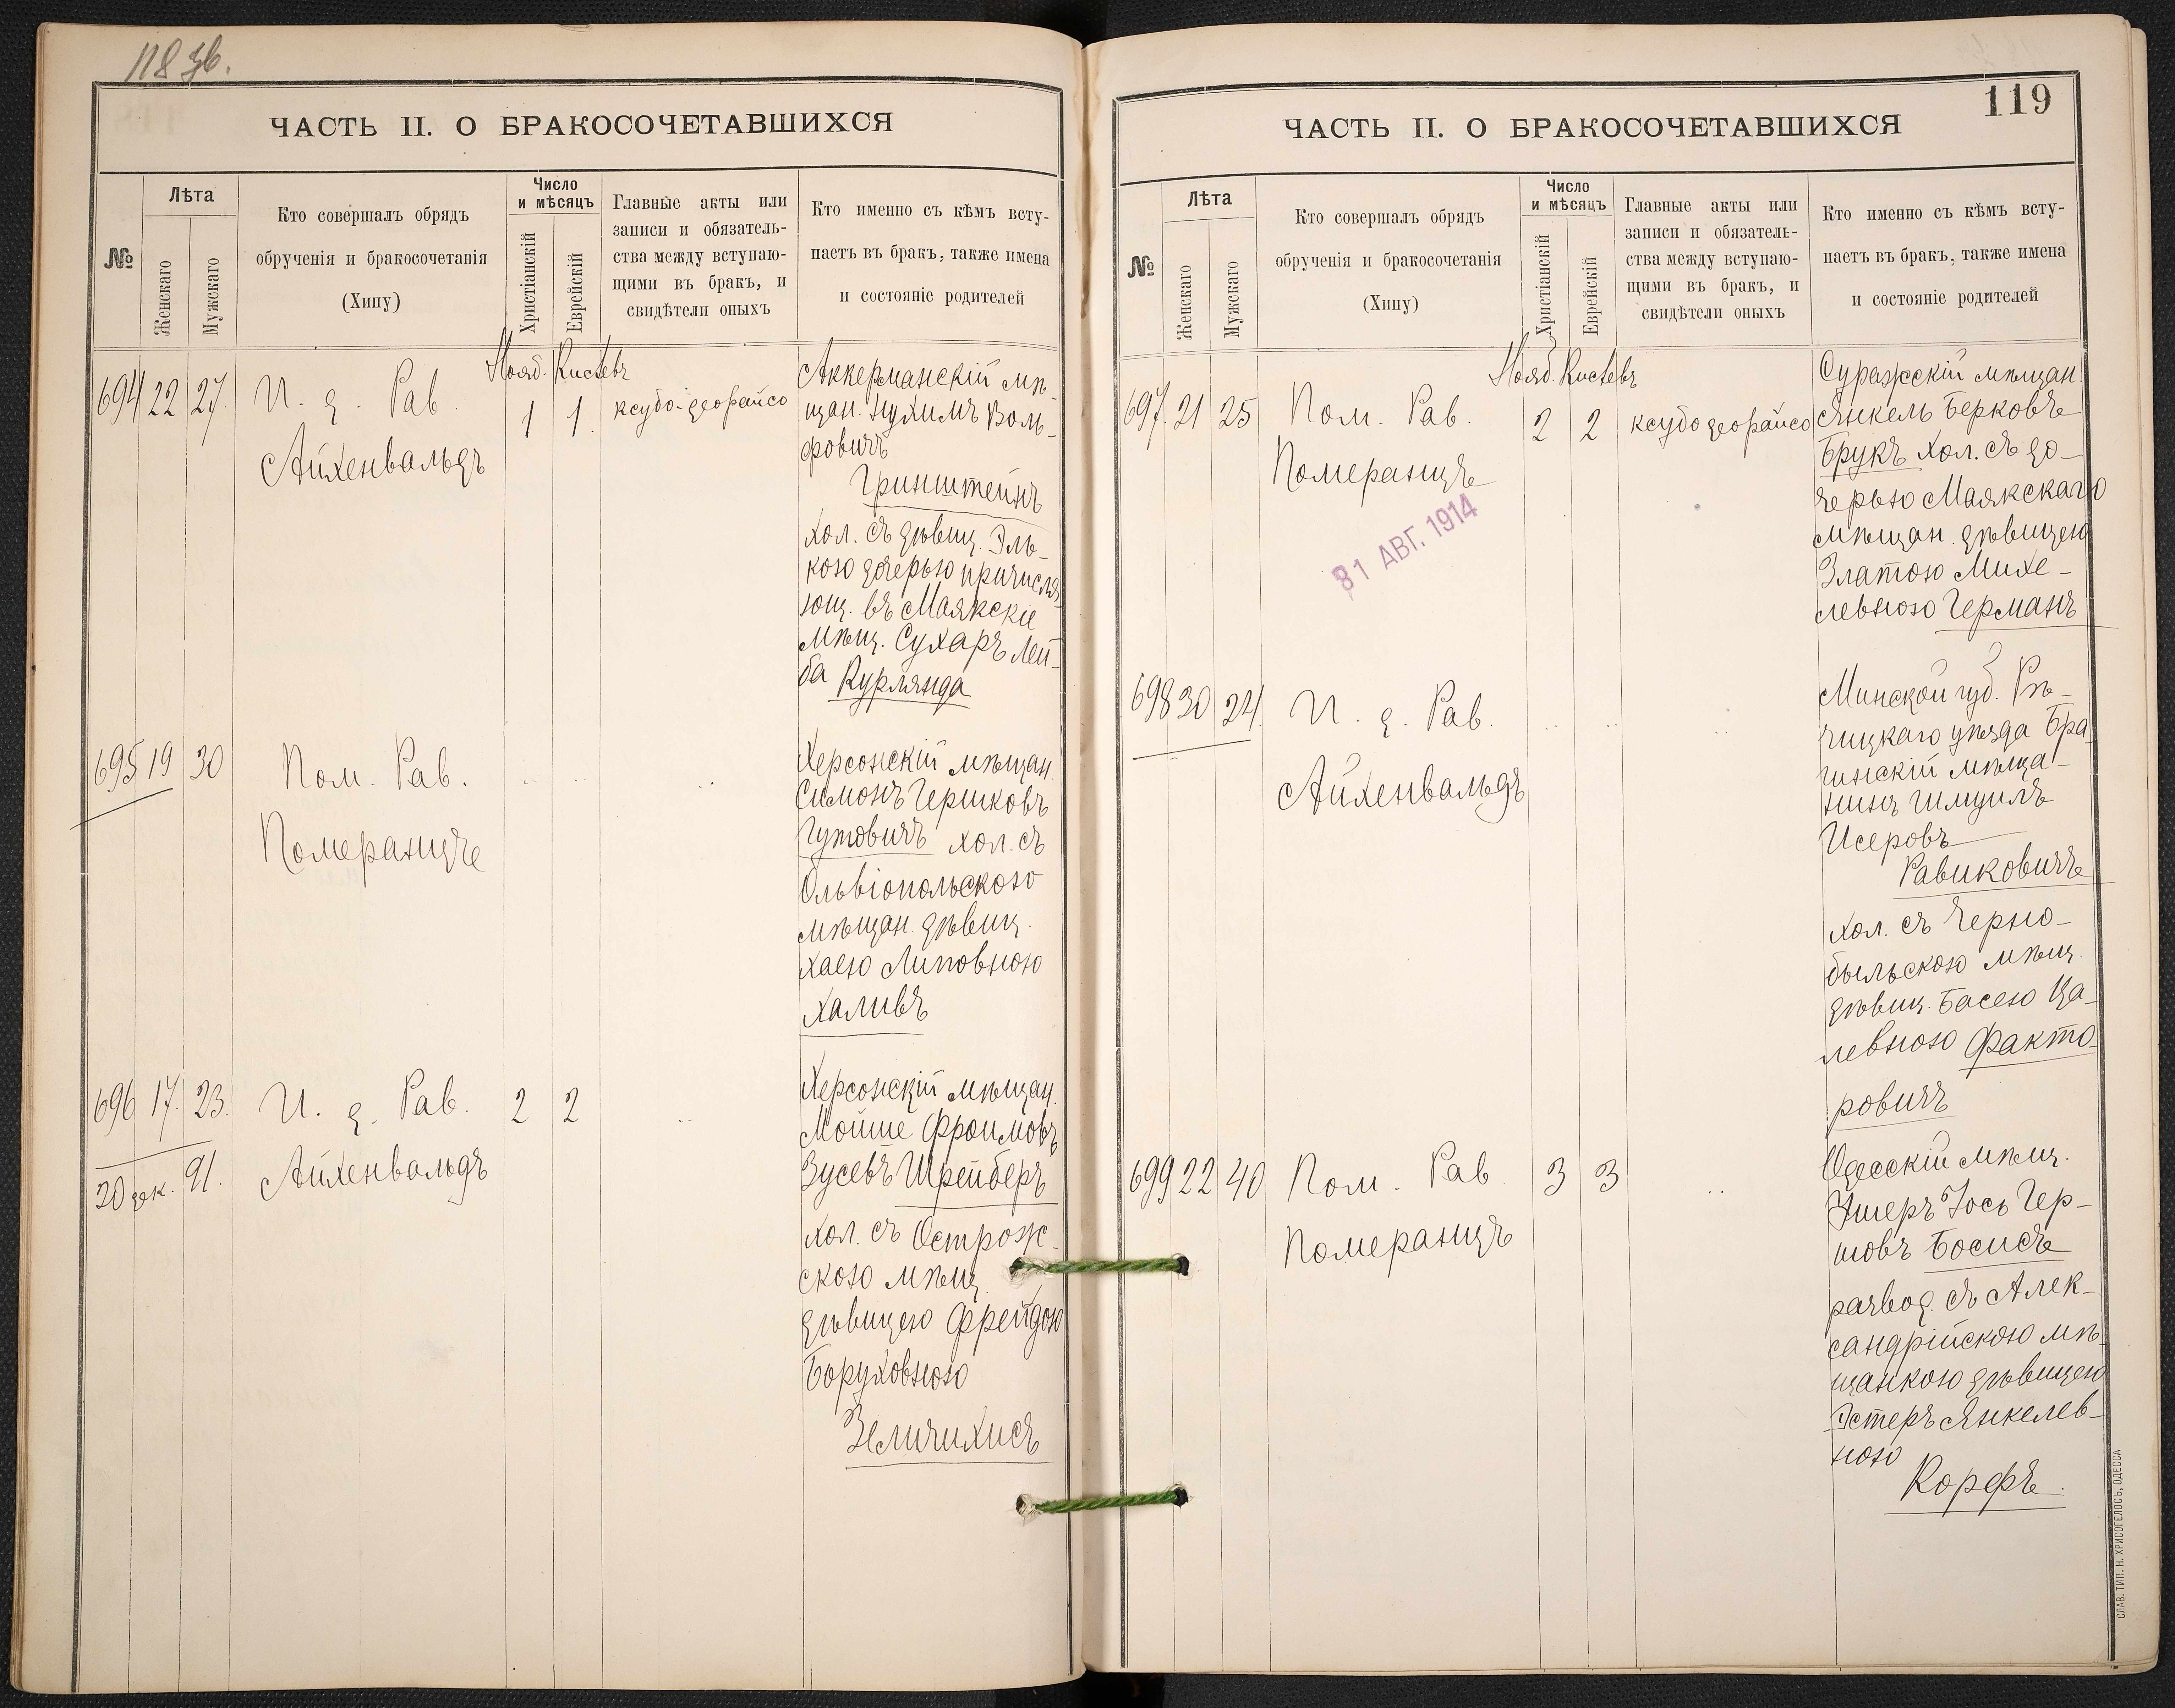 118 зв.
ЧАСТЬ II. О БРАКОСОЧЕТАВШИХСЯ
№
Лѣта
Женскаго
Мужскаго
Кто совершалъ обрядъ
обрученія и бракосочетанія
(Хипу)
Число
и мѣсяцъ
Христіанскій
Еврейскій
Главные акты или
записи и обязатель-
ства между вступаю-
щими въ бракъ, и
свидѣтели оныхъ
Кто именно съ кѣмъ всту-
паетъ въ бракъ, также имена
и состояніе родителей
Нояб. Кислевъ
694 22 27. И. д. Рав.
Айхенвальдъ
1 1.
ксубо-деорайсо
Аккерманскій мѣ-
щан. Нухимъ Воль-
фовичъ
Гринштейнъ
хол. съ дѣвиц. Эль-
кою дочерью причисля-
ющ. въ Маякскіе
мѣщ. Сухаръ Лей-
ба Курлянда
695 19 30
Пом. Рав.
Померанцъ
.. .. ..
Херсонскій мѣщан.
Симонъ Гершковъ
Гутовичъ хол. съ
Ольвіопольскою
мѣщан. дѣвиц.
Хаею Липовною
Халивъ
696 17. 23.
20 дек. 91.
И. д. Рав.
Айхенвальдъ
2 2 ..
Херсонскій мѣщан.
Мойше Фроимовъ
Зусевъ Шрейберъ
хол. съ Острож-
скою мѣщ.
дѣвицею Фрейдою
Боруховною
Зеличихисъ
119
ЧАСТЬ II. О БРАКОСОЧЕТАВШИХСЯ
№
Лѣта
Женскаго
Мужскаго
Кто совершалъ обрядъ
обрученія и бракосочетанія
(Хипу)
Число
и мѣсяцъ
Христіанскій
Еврейскій
Главные акты или
записи и обязатель-
ства между вступаю-
щими въ бракъ, и
свидѣтели оныхъ
Кто именно съ кѣмъ всту-
паетъ въ бракъ, также имена
и состояніе родителей
Нояб. Кислевъ
697. 21 25
Пом. Рав.
Померанцъ
31 АВГ. 1914
2 2
ксубо деорайсо
Суражскій мѣщан.
Янкель Берковъ
Брукъ хол. съ до-
черью Маякскаго
мѣщан. дѣвицею
Златою Михе-
левною Германъ
698 30 24.
И. д. Рав.
Айхенвальдъ
.. .. ..
Минской губ. Рѣ-
чицкаго уѣзда Бра-
гинскій мѣща-
нинъ Шмуилъ
Исеровъ
Равиковичъ
хол. съ Черно-
быльскою мѣщ.
дѣвиц. Басею Ца-
левною Факто-
ровичъ
699 22 40
Пом. Рав.
Померанцъ
3 3 ..
Одесскій мѣщ.
Ушеръ Іось Гер-
шовъ Босисъ
развод. съ Алек-
сандрійскою мѣ-
щанкою дѣвицею
Эстеръ Янкелев-
ною
Корфъ.
СЛАВ. ТИП. Н. ХРИСОГЕЛОСЪ, ОДЕССА